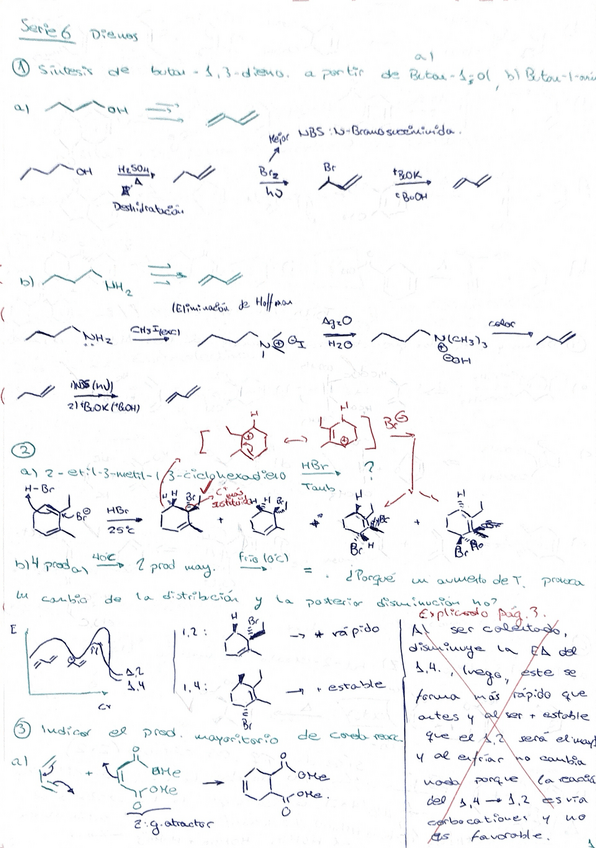 Serie 6 Dienos
a)
① Síntesis de butan-1,3-dieno. a partir de Butan-1-ol, b) Butan-1-
a) OH
Mejor NBS: N-Bromosuccinimida.
OH H₂SO₄ Δ Br₂ hν Br ᵗBuOK ᵗBuOH
Deshidratación
b) NH₂
(Eliminación de Hoffman
NH₂ CH₃I(exc) N ⊕ ⊖I Ag₂O H₂O N(CH₃)₃ ⊕ ⊖OH calor
1) NBS (hν)
2) ᵗBuOK (ᵗBuOH)
[ H ⊕ ↔ H ⊕ ] Br⊖
②
a) 2-etil-3-metil-1,3-ciclohexadieno HBr Tamb. ?
H-Br Br⊖ HBr 25°C H H Br C⁺ más sustituido + H Br + Br H + H Br
b) 4 prod. 40°C 2 prod may. Frío (0°C) = . ¿Porqué un aumento de T. provoca
un cambio de la distribución y la posterior disminución no?
Explicado pág. 3.
E 1,2 1,4 Cr
1,2: H Br → + rápido
1,4: H Br → + estable
Al ser calentado,
disminuye la EA del
1,4., luego, este se
forma más rápido que
antes y al ser + estable
que el 1,2 será el may
y al enfriar no cambia
nada porque la reacción
del 1,4 → 1,2 es vía
carbocationes y no
es favorable.
③ Indicar el prod. mayoritario de cada reac.
a) + O OMe OMe O → O OMe OMe O
Z: g. atractor
1